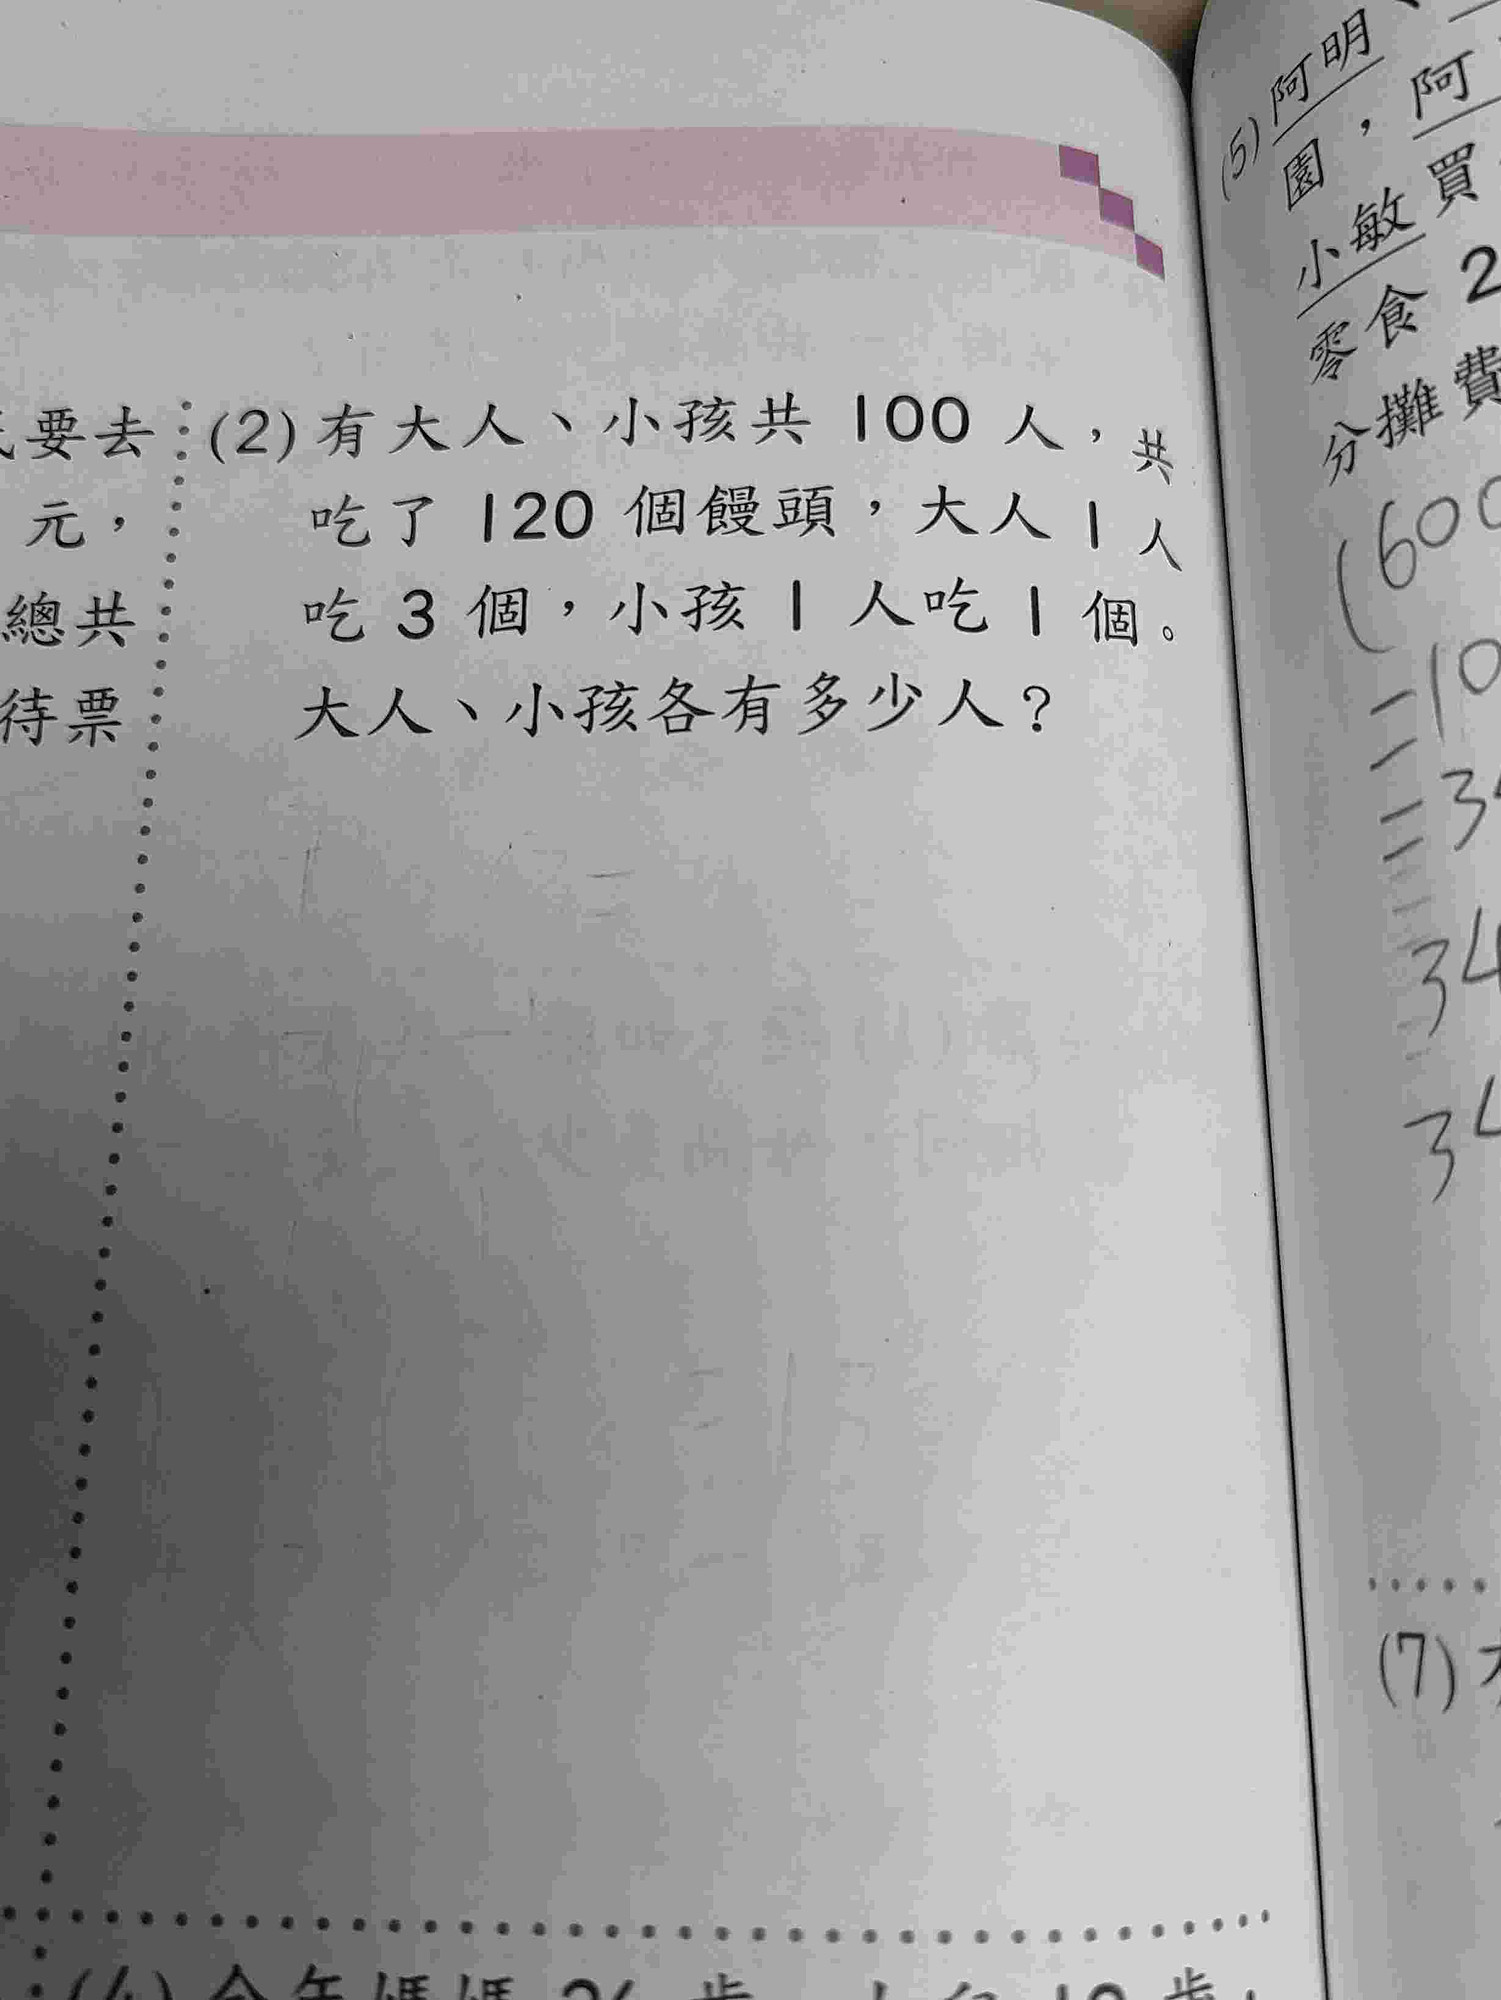 要去
元，
總共
待票
(2) 有大人、小孩共 100 人，共
吃了 120 個饅頭，大人 1 人
吃 3 個，小孩 1 人吃 1 個。
大人、小孩各有多少人？
(5) 阿明、
園，阿
小敏買
零食 2
分攤費
(600
=10
=34
34
34
(7)